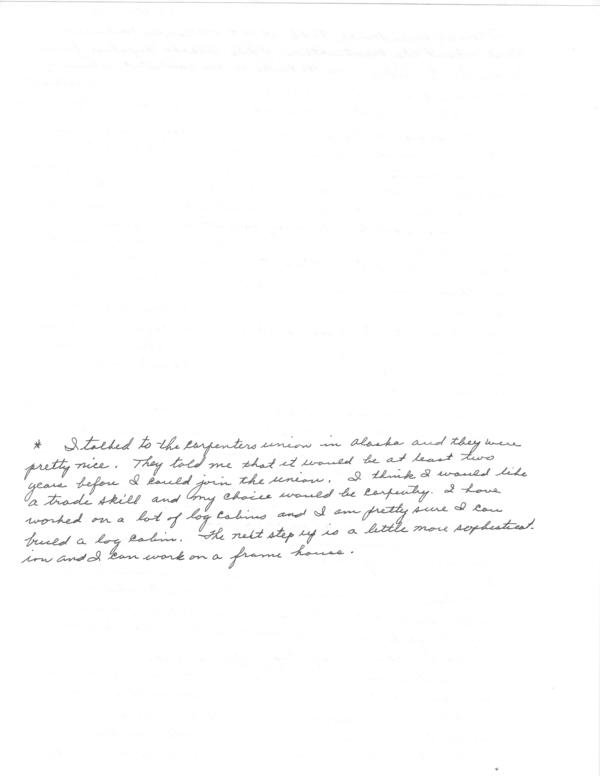 * I talked to the carpenters union in Alaska and they were
pretty nice. They told me that it would be at least two
years before I could join the union. I think I would like
a trade skill and my choice would be carpentry. I have
worked on a lot of log cabins and I am pretty sure I can
build a log cabin. The next step up is a little more sophisticat-
ion and I can work on a frame house.